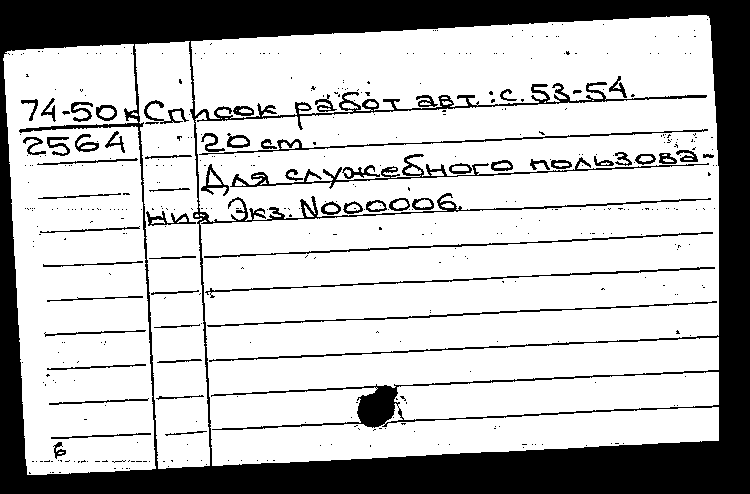 74-50к Список работ авт.: с. 53-54.
2564 20 cm.
Для служебного пользова-
ния. Экз. N000006.
б